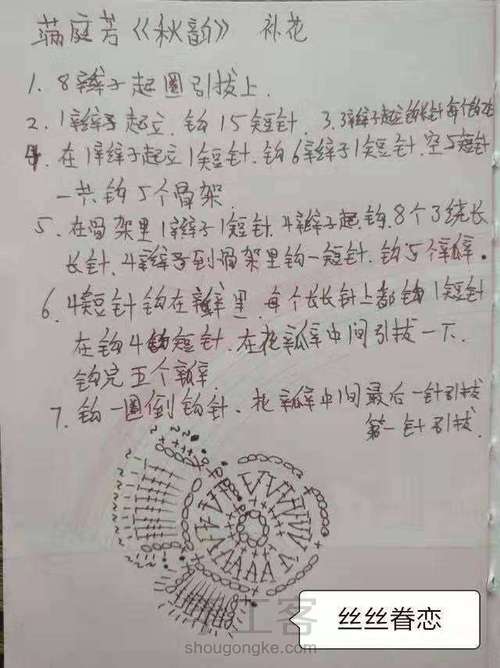 满庭芳《秋韵》 补花
1. 8辫子起圈引拔上.
2. 1辫子起立.钩15短针. 3. 3辫子起立钩长针每个
4. 在1辫子起立1短针.钩6辫子1短针.空5短针
一共钩5个骨架.
5. 在骨架里1辫子1短针.4辫子起.钩.8个3绕长
长针.4辫子到骨架里钩一短针.钩5个瓣.
6. 4短针钩在瓣里.每个长长针上都钩1短针
在钩4短针.在花瓣中间引拔一下.
钩完五个瓣.
7. 钩一圈倒钩针.花瓣中间最后一针引拔
第一针引拔.
丝丝眷恋
手工客
shougongke.com